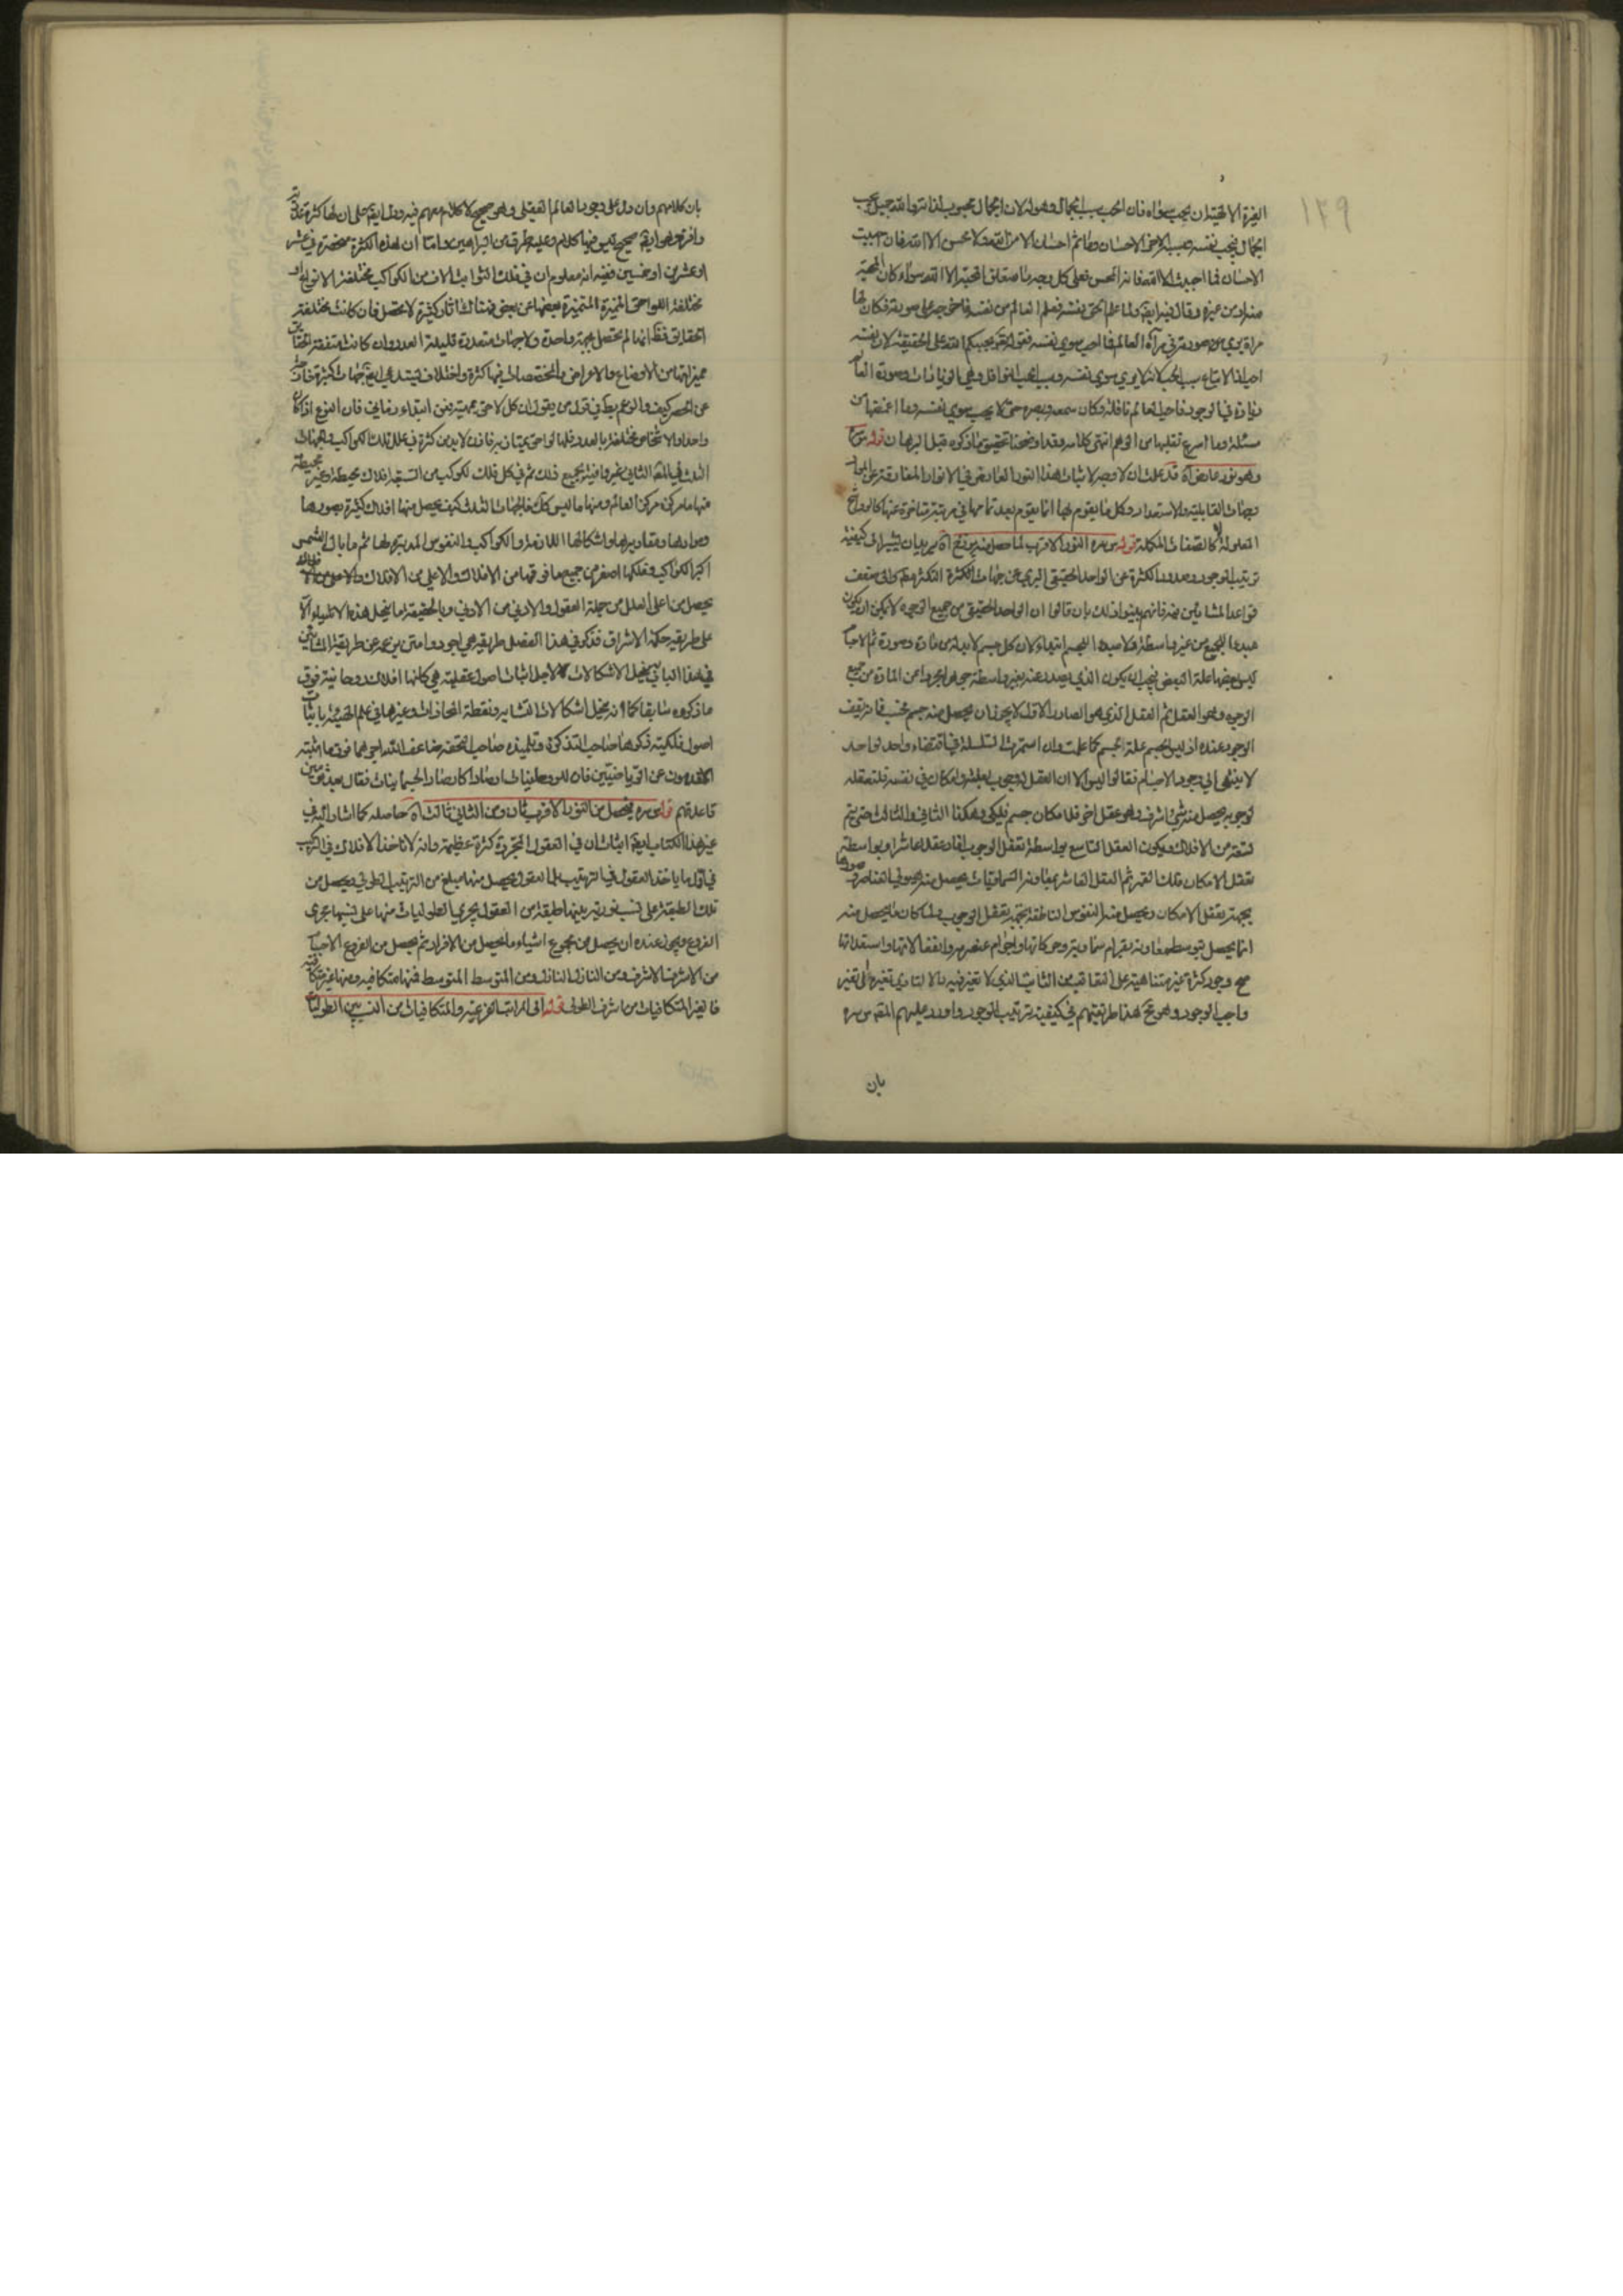 ١٣٩
الغيرة الالهية ان يحب سواه فان الحب سببه الجمال وهو له لان الجمال محبوب لذاته والله جميل يحب
الجمال فيحب نفسه وسببه الاخر الاحسان وما تم احسان الا من الله ولا محسن الا الله فان احببت
الاحسان فما احببت الا الله فانه المحسن فعلى كل وجه ما متعلق المحبة الا الله سواء كان المحبة
من غيره وقال فيه ايضا ولما علم الحق نفسه فعلم العالم من نفسه فاخرجه على صورته فكان لها
مرآة يرى صورته في مرآة العالم فما احب سوى نفسه فقوله يحببكم الله على الحقيقة لان نفسه
احب اذ الاتباع سبب الحب لانه لا يرى سوى نفسه وسبب الحب النوافل وهي الزيادات وصورة العالم
زيادة في الوجود فاحب العالم نافلة فكان سمعه وبصره حتى لا يحب سوى نفسه وما اغمضها من
مسئلة وما اسرع تفلتها من الوهم انتهى كلامه وقد اوضحنا تحقيق ما ذكره قبل البرهان قوله
وهو نور عارض آه قد علمت ان لا وجه لاثبات هذا النور العارض في الانوار المفارقة عن المواد
وجهات القابلية والاستعداد وكل ما يقوم بها انما يقوم بعد تمامها في مرتبة متاخرة عنها كاللوازم
المعلولة لا كالصفات المكملة قوله س سره النور الاقرب لما حصل منه برزخ آه يريد بيان كيفية
ترتيب الوجود وصدور الكثرة عن الواحد الحقيقي البري عن جهات الكثرة والتكثر
قواعد المشائين فانهم بينوا ذلك بان قالوا ان الواحد الحقيقي من جميع الوجوه لا يمكن ان يكون
مبدءا للجميع من غير واسطة ولا مبدءا للجسم ابتداء لان كل جسم لا بد له من مادة وصورة ثم الاجسام
ليس بعضها علة للبعض فيجب ان يكون الذي يصدر عنه بغير واسطة جوهرا مجردا عن المادة من جميع
الوجوه وهو العقل ثم العقل الذي هو الصادر الاول لا يجوز ان يحصل منه جسم فحسب فانه يقف
الوجود عنده اذ ليس الجسم علة للجسم كما علمت وان استمرت السلسلة في اقتضاء واحد لواحد
لا ينتهي الى وجود الاجسام فقالوا ليس الا ان العقل له وجوب بعلته وامكان في نفسه فلتعقله
لوجوبه يحصل منه شئ اشرف وهو عقل اخر فلامكان جسم فلكي وهكذا الثاني والثالث حتى يتم
تسعة من الافلاك ويكون العقل التاسع بواسطة تعقل الوجوب افاد عقلا عاشرا وبواسطة
تعقل الامكان فلك القمر ثم العقل العاشر بمعاونة السماويات يحصل منه هيولى العناصر وصورها
بجهة تعقل الامكان ويحصل منه النفوس الناطقة بجهة تعقل الوجوب ولما كان ما يحصل منه
انما يحصل بتوسط معاونة اجرام سماوية وحركاتها واجرام عنصرية وانفعالاتها واستعداداتها
صح وجود كثرة غير متناهية على التعاقب من الثابت الذي لا تغير فيه والا لتادى تغيره الى تغير
واجب الوجود وهو مح هذا طريقتهم في كيفية ترتيب الوجود واورد عليهم المص س سره
بان
بان كلامهم وان دل على وجود العالم العقلي وهو صحيح لا كلام معهم فيه ودل ايضا على ان لها كثرة
وافرة وهو ايضا صحيح ليس فيها كلام وعليه طرق من البراهين واما ان هذه الكثرة منحصرة في عشر
او عشرين او خمسين ففيه انه معلوم ان في فلك الثوابت الاف من الكواكب مختلفة الانواع او
مختلفة اللواحق المميزة المتميزة بعضها عن بعض فهناك اثار كثيرة لا تحصى فان كانت مختلفة
الحقايق فظ انها لم تحصل بجهة واحدة ولا جهات متعددة قليلة العدد وان كانت متفقة الحقايق
مميزاتها من الاوضاع والاعراض والمخصصات فيها كثرة واختلاف فيستدعي ايضا جهات كثيرة خارجة
عن الحصر كيف والوهم
واحدا والاشخاص مختلفة بالعدد فلها لواحق يمتاز بها فاذن لا بد من كثرة في علل تلك الكواكب وجهات
الثلث في العقل الثاني غير وافية بجميع ذلك ثم في كل فلك لكوكب من السبعة افلاك محيطة وغير محيطة
منها ما مركزه مركز العالم ومنها ما ليس كذلك فالجهات الثلث كيف يحصل منها افلاك كثيرة بصورها
وموادها ومقاديرها واشكالها اللازمة والكواكب والنفوس المدبرة لها ثم ما بال الشمس
اكبر الكواكب وفلكها اصغر من جميع ما فوقها من الافلاك والاعلى من الافلاك
يحصل من اعلى العلل من جملة العقول والادنى من الادنى وبالحقيقة ما ينحل هذه الاشياء الا
على طريقة حكمة الاشراق فذكر في هذا الفصل طريقة هي اجود وامتن من عن طريقة المشائين
في هذا الباب ينحل الاشكالات لاجل اثبات اصول عقلية هي كانها افلاك روحانية فوق
ما ذكروه سابقا كما انه ينحل اشكالات التشابه ونقطة المحاذات وغيرها في علم الهيئة باثبات
اصول فلكية ذكرها صاحب التذكرة وتلميذه صاحب التحفة مضاعف التداوير مما فوق ما اثبته
الاقدمون عن الرياضيين فان للروحانيات ارصادا كارصاد الجسمانيات فقال بعد تمهيد
قاعدتهم قوله س سره فيحصل من النور الاقرب ثان ومن الثاني ثالث آه حاصله كما اشار اليه في
غير هذا الكتاب ايضا اثبات ان في العقول المجردة كثرة عظيمة وانه لا تاخذ الافلاك في الترتيب
في اول ما ياخذ العقول في الترتيب بل العقول يحصل منها مبلغ من الترتيب الطولي ويحصل من
تلك الطبقة على نسب نورية بينها طبقة من العقول يجرى المعلولات منها على نسبها مجرى
الفروع ويجوز عنده ان يحصل من مجموع اشياء ما يحصل من الافراد ثم يحصل من الفروع الاجسام
من الاشرف الاشرف ومن النازل النازل ومن المتوسط المتوسط فمنها متكافية ومنها غير متكافية
فالغير المتكافيات من اشرف الطولي قوله